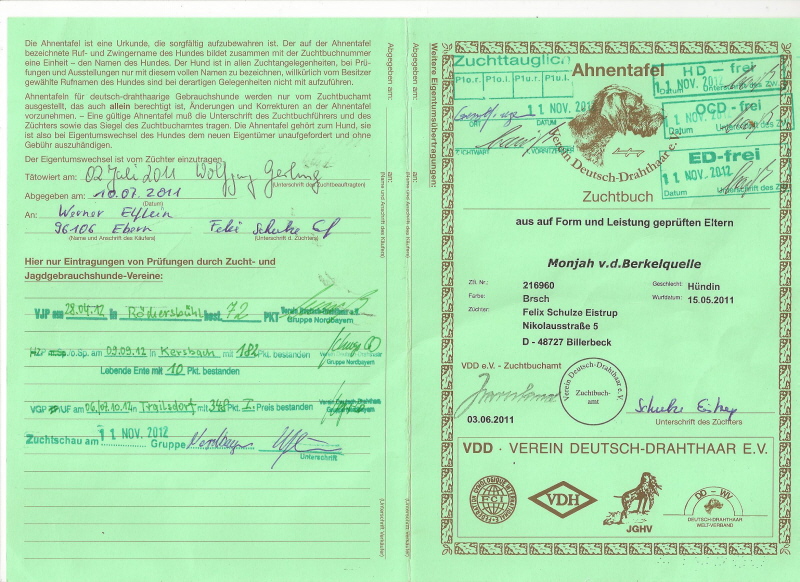 Die Ahnentafel ist eine Urkunde, die sorgfältig aufzubewahren ist. Der auf der Ahnentafel
bezeichnete Ruf- und Zwingername des Hundes bildet zusammen mit der Zuchtbuchnummer
eine Einheit – den Namen des Hundes. Der Hund ist in allen Zuchtangelegenheiten, bei Prü-
fungen und Ausstellungen nur mit diesem vollen Namen zu bezeichnen, willkürlich vom Besitzer
gewählte Rufnamen des Hundes sind bei derartigen Gelegenheiten nicht mit aufzuführen.
Ahnentafeln für deutsch-drahthaarige Gebrauchshunde werden nur vom Zuchtbuchamt
ausgestellt, das auch allein berechtigt ist, Änderungen und Korrekturen an der Ahnentafel
vorzunehmen. – Eine gültige Ahnentafel muß die Unterschrift des Zuchtbuchführers und des
Züchters sowie das Siegel des Zuchtbuchamtes tragen. Die Ahnentafel gehört zum Hund, sie
ist also bei Eigentumswechsel des Hundes dem neuen Eigentümer unaufgefordert und ohne
Gebühr auszuhändigen.
Der Eigentumswechsel ist vom Züchter einzutragen.
Tätowiert am: 02 Juli 2011 Wolfgang Gerling
(Unterschrift des Zuchtbeauftragten)
Abgegeben am: 10.07.2011
(Datum)
An: Werner Elflein
96106 Ebern Felix Schulze
(Name und Anschrift des Käufers) (Unterschrift d. Züchters)
Hier nur Eintragungen von Prüfungen durch Zucht- und
Jagdgebrauchshunde-Vereine:
VJP am 28.04.12 in Rödersbühl best. 72 PKT
Gruppe Nordbayern
HZP m.Sp./o.Sp. am 09.09.12 in Kersbach mit 182 Pkt. bestanden
Gruppe Nordbayern
Lebende Ente mit 10 Pkt. bestanden
VGP /ÜF am 06./07.10.12 in Trailsdorf mit Pkt. I. Preis bestanden
Zuchtschau am 11 NOV. 2012 Gruppe Nordbayern
Unterschrift
Abgegeben am:
an:
(Name und Anschrift des Käufers)
(Unterschrift Verkäufer)
Abgegeben am:
an:
(Name und Anschrift des Käufers)
(Unterschrift Verkäufer)
Weitere Eigentumsübertragungen:
Zuchttauglich
P1o.r. P1o.l. P1u.r. P1u.l.
11 NOV. 2012
ORT DATUM
Ahnentafel
HD - frei
11 NOV. 2012
Datum Unterschrift des ZW
OCD - frei
11 NOV. 2012
Datum Unterschrift des ZW
ED-frei
11 NOV. 2012
Datum Unterschrift des ZW
Verein Deutsch-Drahthaar e.V.
Zuchtbuch
aus auf Form und Leistung geprüften Eltern
Monjah v.d.Berkelquelle
ZB. Nr.: 216960 Geschlecht: Hündin
Farbe: Brsch Wurfdatum: 15.05.2011
Züchter: Felix Schulze Eistrup
Nikolausstraße 5
D - 48727 Billerbeck
VDD e.V. - Zuchtbuchamt
Verein Deutsch-Drahthaar e.V.
Zuchtbuch-
amt
Schulze Eistrup
03.06.2011
Unterschrift des Züchters
VDD · VEREIN DEUTSCH-DRAHTHAAR E.V.
FEDERATION CYNOLOGIQUE INTERNATIONALE
FCI
VDH
JGHV
DD - WV
DEUTSCH-DRAHTHAAR
WELT-VERBAND